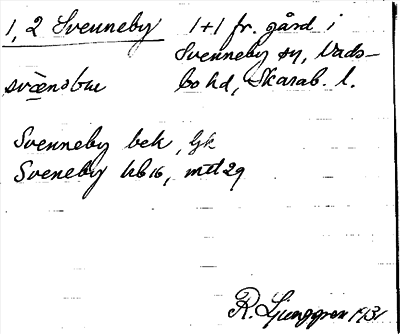 1, 2 Svenneby 1+1 fr. gård i
Svenneby sn, Vads-
bo hd, Skarab. l.
Svenneby bek, Gk
Sveneby hb16, mtl29
R. Ljunggren 1931